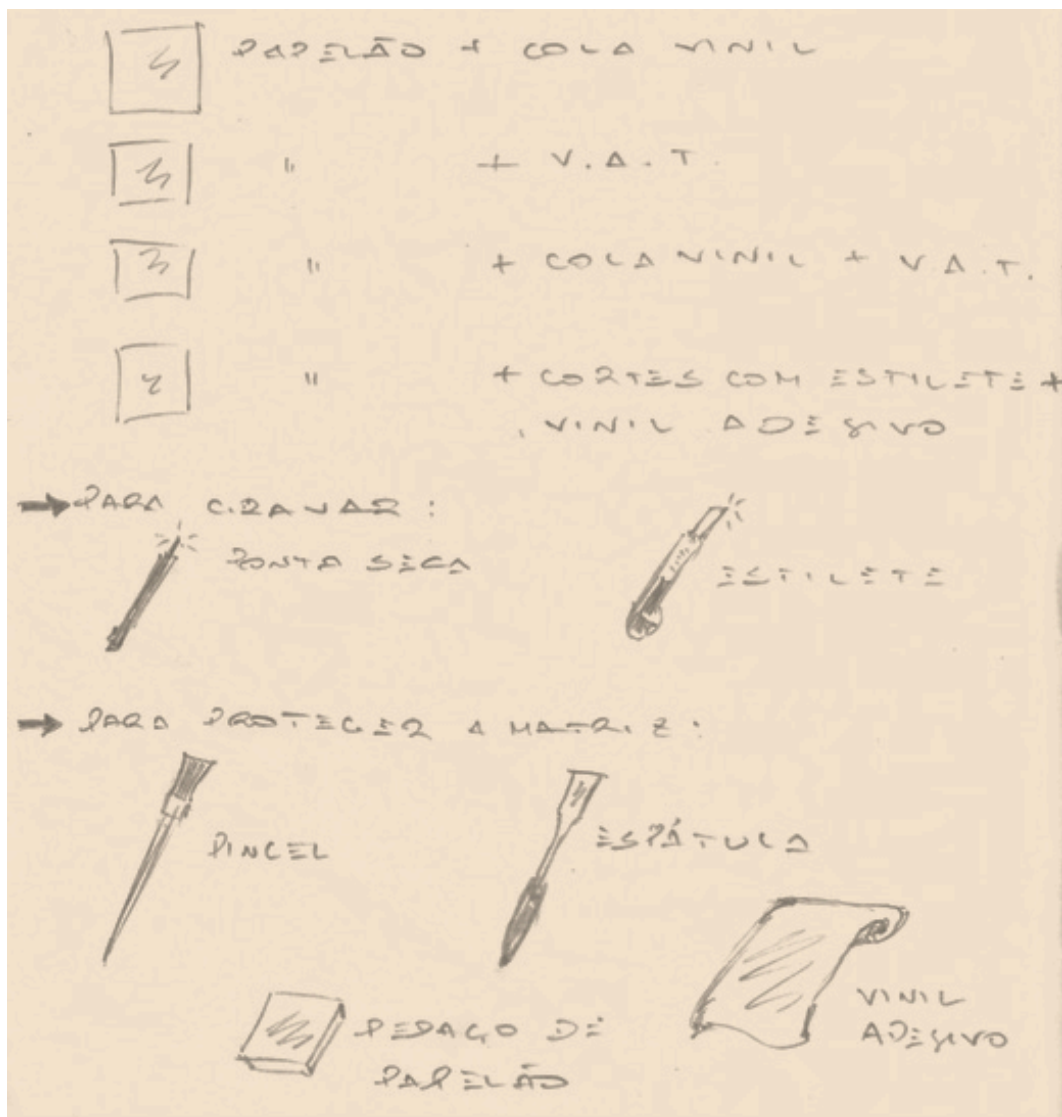 PAPELÃO + COLA VINIL
" + V.A.T.
" + COLA VINIL + V.A.T.
" + CORTES COM ESTILETE +
VINIL ADESIVO
PARA GRAVAR:
PONTA SECA
ESTILETE
PARA PROTEGER A MATRIZ:
PINCEL
ESPÁTULA
VINIL
ADESIVO
PEDAÇO DE
PAPELÃO